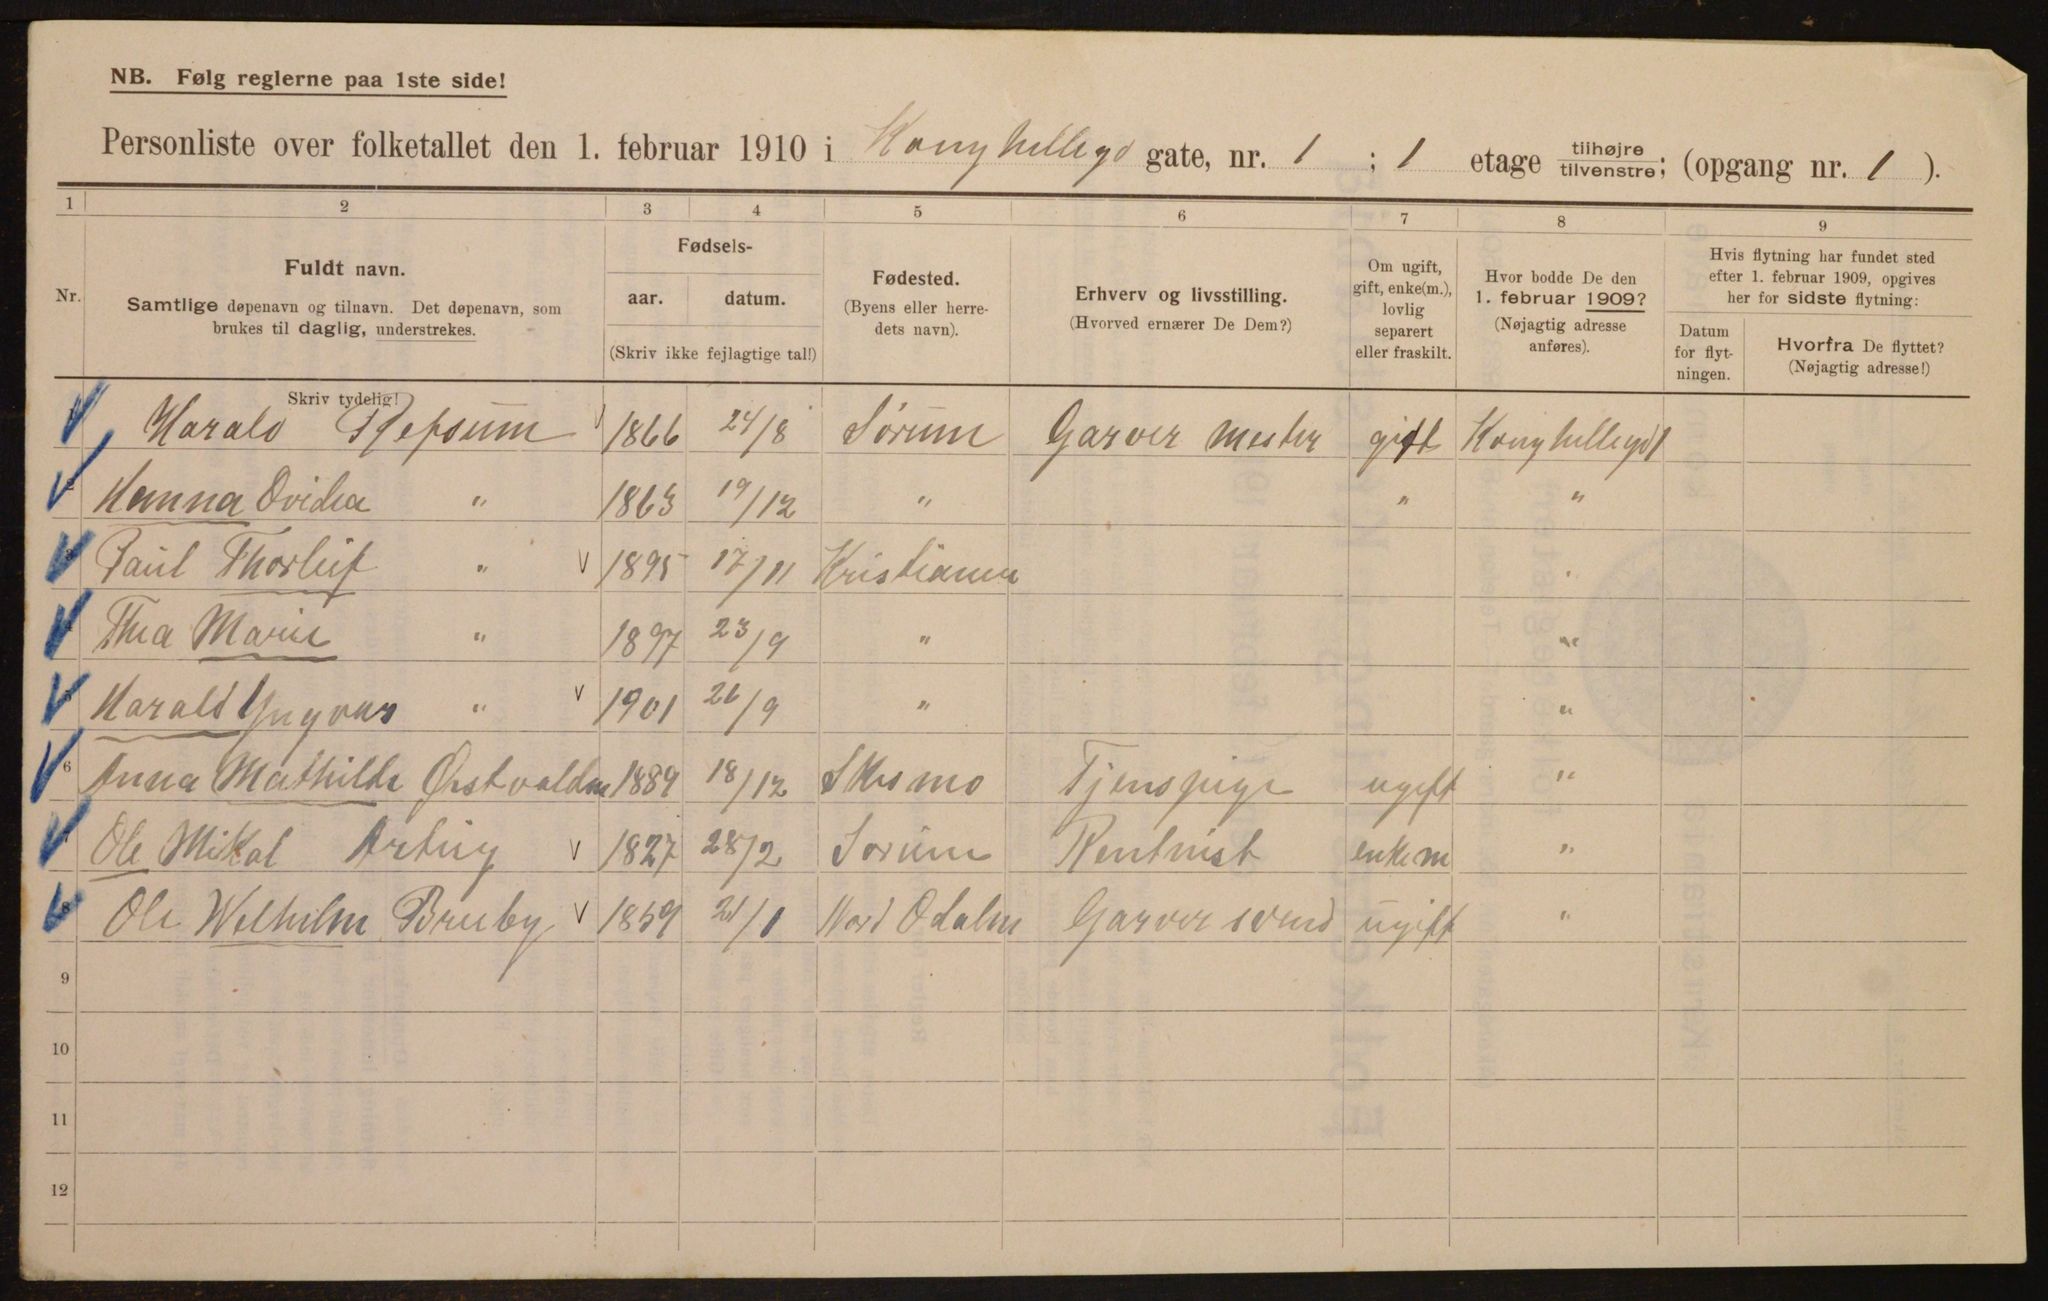 NB. Følg reglerne paa 1ste side!
Personliste over folketallet den 1. februar 1910 i Konghellegd gate, nr. 1 ; 1 etage tilhøjre tilvenstre; (opgang nr. 1 ).
1 2 3 4 5 6 7 8 9
Nr.
Fuldt navn.
Samtlige døpenavn og tilnavn. Det døpenavn, som
brukes til daglig, understrekes.
Fødsels-
aar. datum.
(Skriv ikke fejlagtige tal!)
Fødested.
(Byens eller herre-
dets navn).
Erhverv og livsstilling.
(Hvorved ernærer De Dem?)
Om ugift,
gift, enke(m.),
lovlig
separert
eller fraskilt.
Hvor bodde De den
1. februar 1909?
(Nøjagtig adresse
anføres).
Hvis flytning har fundet sted
efter 1. februar 1909, opgives
her for sidste flytning:
Datum
for flyt-
ningen.
Hvorfra De flyttet?
(Nøjagtig adresse!)
Skriv tydelig!
1 Harald Refsum 1866 24/8 Sørum Garver mester gift Konghellegd 1
2 Hanna Ovidia " 1863 19/12 " " "
3 Paul Thorleif " v 1895 17/11 Kristiania "
4 Thea Marie " 1897 23/9 " "
5 Harald Yngvar " v 1901 26/9 " "
6 Anna Mathilde 1889 18/12 Tjenspige ugift "
7 Ole Mikal v 1827 28/2 Sorum Rentnist enkem "
8 Ole Welhelm Bruby v 1859 21/1 Nord Odalen Garver svend ugift "
9
10
11
12